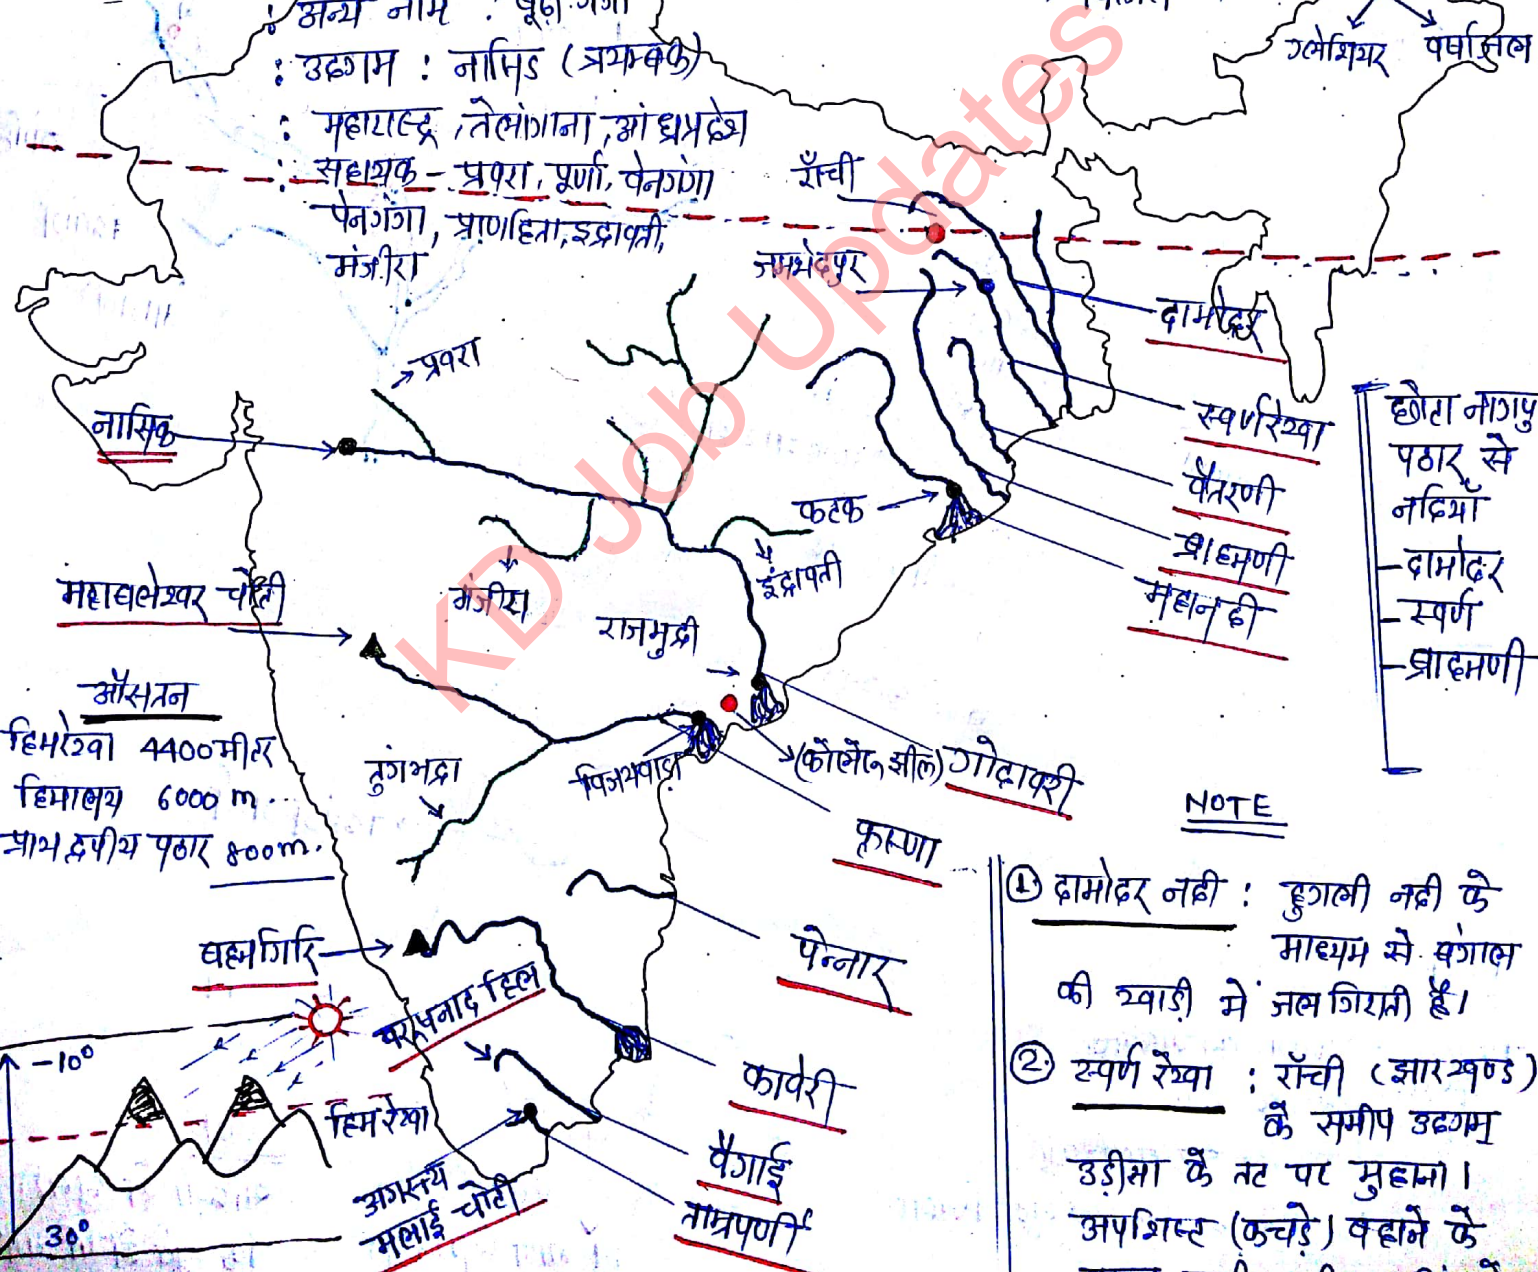 : अन्य नाम : बूढ़ी गंगा
: उदगम : नासिक (त्रयम्बक)
: महाराष्ट्र, तेलांगाना, आंध्रप्रदेश
: सहायक - प्रवरा, पूर्णा, वेनगंगा
पेनगंगा, प्राणहिता, इंद्रावती,
मंजीरा
ग्लेशियर वर्षाजल
राँची
जमशेदपुर
दामोदर
प्रवरा
नासिक
स्वर्णरेखा
वैतरणी
ब्राहमणी
महानदी
कटक
छोटा नागपु
पठार से
नदियाँ
- दामोदर
- स्वर्ण
- ब्राहमणी
महाबलेश्वर चोटी
मंजीरा
इंद्रावती
राजमुद्री
औसतन
हिमरेखा 4400 मीटर
हिमालय 6000 m
प्रायद्वपीय पठार 800m.
तुंगभद्रा
विजयवाड़ा
(कोलेरू झील)
गोदावरी
कृष्णा
पेन्नार
बह्मगिरि
वरूषनाद हिल
कावेरी
वैगाई
ताम्रपर्णी
अगस्त्य
मलाई चोटी
-10°
हिमरेखा
30°
NOTE
① दामोदर नदी : हुगली नदी के
माध्यम से बंगाल
की खाड़ी में जल गिराती है।
② स्वर्ण रेखा : राँची (झारखण्ड)
के समीप उदगम
उड़ीसा के तट पर मुहाना।
अपशिष्ट (कचड़े) बहाने के
KD Job Updates